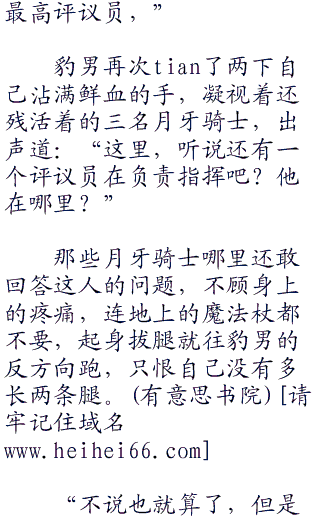 最高评议员，”
豹男再次tian了两下自
己沾满鲜血的手，凝视着还
残活着的三名月牙骑士，出
声道：“这里，听说还有一
个评议员在负责指挥吧？他
在哪里？”
那些月牙骑士哪里还敢
回答这人的问题，不顾身上
的疼痛，连地上的魔法杖都
不要，起身拔腿就往豹男的
反方向跑，只恨自己没有多
长两条腿。(有意思书院)[请
牢记住域名
www.heihei66.com]
“不说也就算了，但是